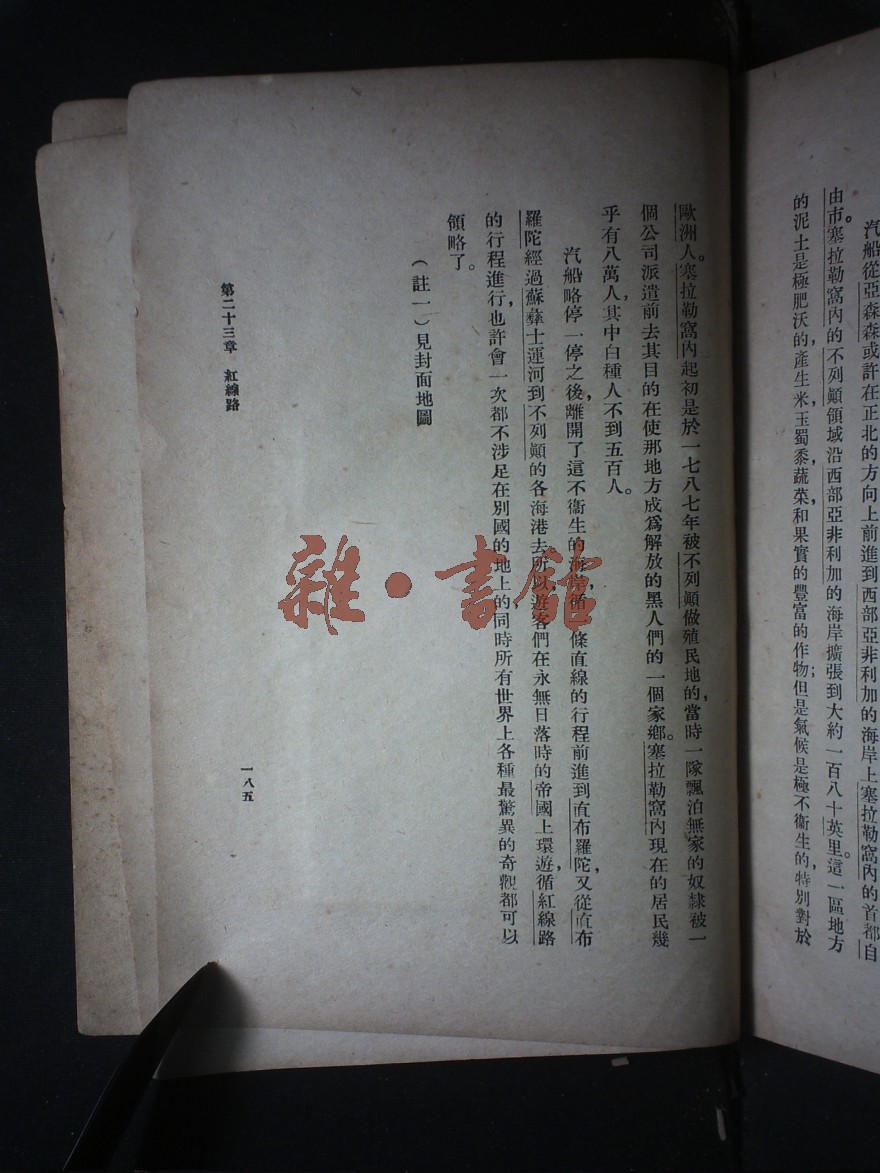 汽船從亞森森或許在正北的方向上前進到西部亞非利加的海岸上塞拉勒窩內的首都自
由市。塞拉勒窩內的不列顚領域沿西部亞非利加的海岸擴張到大約一百八十英里。這一區地方
的泥土是極肥沃的，產生米，玉蜀黍，蔬菜，和果實的豐富的作物；但是氣候是極不衞生的，特別對於
歐洲人。塞拉勒窩內起初是於一七八七年被不列顚做殖民地的，當時一隊飄泊無家的奴隸被一
個公司派遣前去，其目的在使那地方成爲解放的黑人們的一個家鄉。塞拉勒窩內現在的居民幾
乎有八萬人，其中白種人不到五百人。
汽船略停一停之後，離開了這不衞生的海岸，循一條直線的行程前進到直布羅陀，又從直布
羅陀經過蘇彝士運河到不列顚的各海港去。所以遊客們在永無日落時的帝國上環遊，循紅線路
的行程進行，也許會一次都不涉足在別國的地上的，同時所有世界上各種最驚異的奇觀都可以
領略了。
（註一）見封面地圖
第二十三章　紅線路
一八五
雜·書館